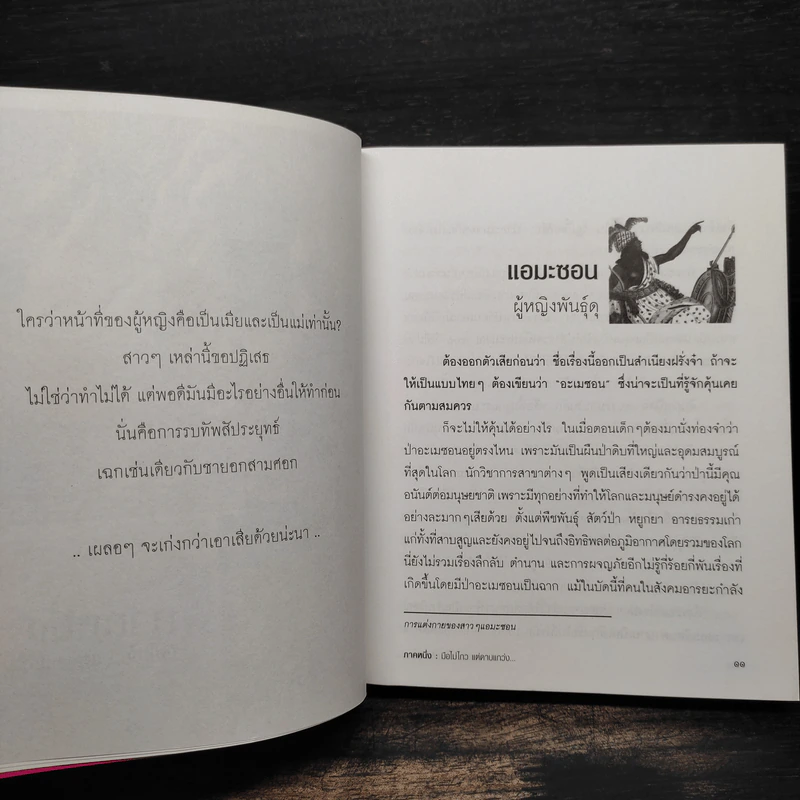 ใครว่าหน้าที่ของผู้หญิงคือเป็นเมียและเป็นแม่เท่านั้น?
สาวๆ เหล่านี้ขอปฏิเสธ
ไม่ใช่ว่าทำไม่ได้ แต่พอดีมันมีอะไรอย่างอื่นให้ทำก่อน
นั่นคือการรบทัพสัประยุทธ์
เฉกเช่นเดียวกับชายอกสามศอก
.. เผลอๆ จะเก่งกว่าเอาเสียด้วยน่ะนา ..
แอมะซอน
ผู้หญิงพันธุ์ดุ
ต้องออกตัวเสียก่อนว่า ชื่อเรื่องนี้ออกเป็นสำเนียงฝรั่งจ๋า ถ้าจะ
ให้เป็นแบบไทยๆ ต้องเขียนว่า "อะเมซอน" ซึ่งน่าจะเป็นที่รู้จักคุ้นเคย
กันตามสมควร
ก็จะไม่ให้คุ้นได้อย่างไร ในเมื่อตอนเด็กๆต้องมานั่งท่องจำว่า
ป่าอะเมซอนอยู่ตรงไหน เพราะมันเป็นผืนป่าดิบที่ใหญ่และอุดมสมบูรณ์
ที่สุดในโลก นักวิชาการสาขาต่างๆ พูดเป็นเสียงเดียวกันว่าป่านี้มีคุณ
อนันต์ต่อมนุษยชาติ เพราะมีทุกอย่างที่ทำให้โลกและมนุษย์ดำรงคงอยู่ได้
อย่างละมากๆเสียด้วย ตั้งแต่พืชพันธุ์ สัตว์ป่า หยูกยา อารยธรรมเก่า
แก่ทั้งที่สาบสูญและยังคงอยู่ไปจนถึงอิทธิพลต่อภูมิอากาศโดยรวมของโลก
นี่ยังไม่รวมเรื่องลึกลับ ตำนาน และการผจญภัยอีกไม่รู้กี่ร้อยกี่พันเรื่องที่
เกิดขึ้นโดยมีป่าอะเมซอนเป็นฉาก แม้ในบัดนี้ที่คนในสังคมอารยะกำลัง
การแต่งกายของสาวๆแอมะซอน
ภาคหนึ่ง : มือไม่ไกว แต่ดาบแกว่ง... ๑๑